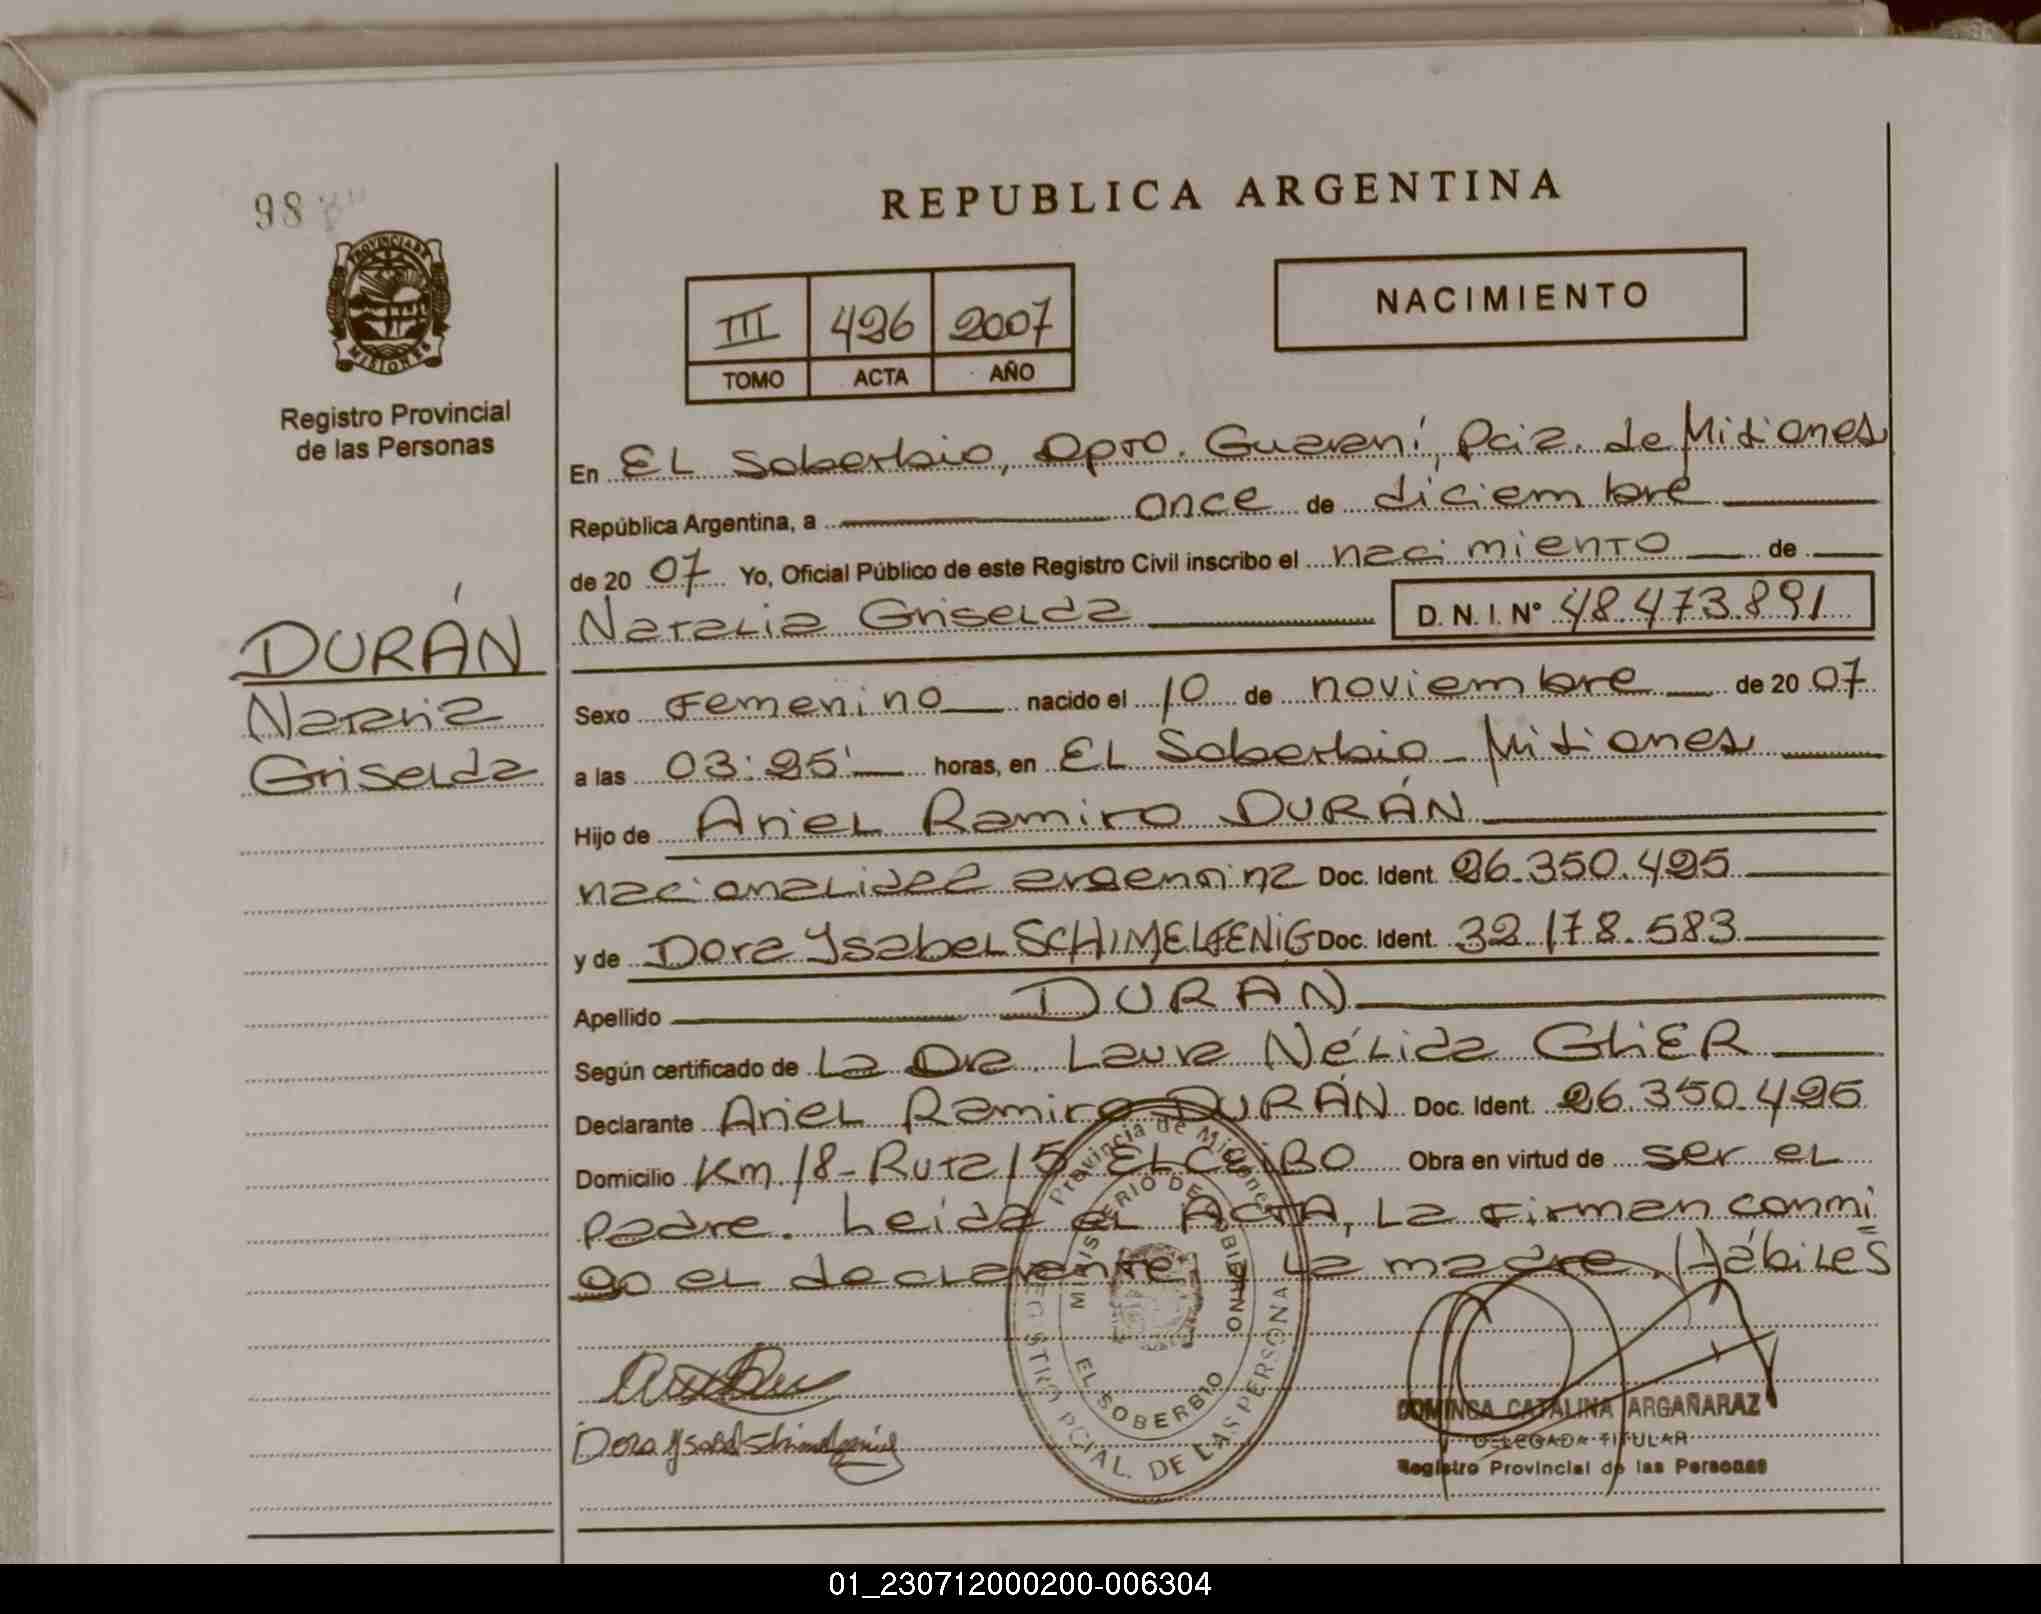 98
PROVINCIA DE
MISIONES
Registro Provincial
de las Personas
REPUBLICA ARGENTINA
III 426 2007
TOMO ACTA AÑO
NACIMIENTO
En El Soberbio, Dpto. Guaraní, Pcia. de Misiones
República Argentina, a once de diciembre
de 20 07 Yo, Oficial Público de este Registro Civil inscribo el nacimiento de
Natalia Griselda D. N. I. Nº 48.473.891
DURÁN
Natalia
Griselda
Sexo Femenino nacido el 10 de noviembre de 20 07
a las 03:25' horas, en El Soberbio - Misiones
Hijo de Ariel Ramiro DURÁN
nacionalidad argentina Doc. Ident. 26.350.425
y de Dora Ysabel SCHIMELFENIG Doc. Ident. 32.178.583
Apellido DURAN
Según certificado de La Dra. Laura Nélida GLIER
Declarante Ariel Ramiro DURÁN Doc. Ident. 26.350.425
Domicilio Km. 18 - Ruta 15 EL CEIBO Obra en virtud de ser el
padre. Leída el ACTA, La firman conmi
go el declarante La madre. Hábiles
Provincia de Misiones
MINISTERIO DE GOBIERNO
EL SOBERBIO
REGISTRO PCIAL. DE LAS PERSONAS
Dora Ysabel Schimelfenig
DOMINGA CATALINA ARGAÑARAZ
DELEGADA TITULAR
Registro Provincial de las Personas
01_230712000200-006304